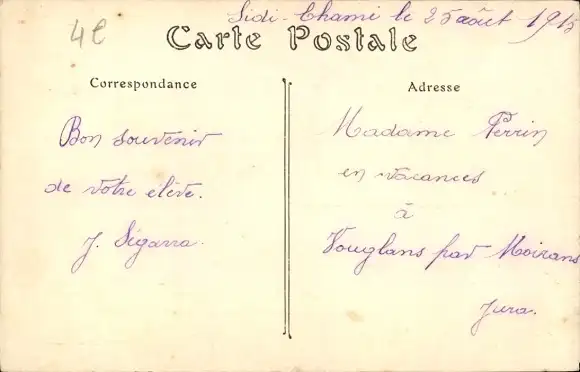 4€
Sidi-Chami le 25 août 1913
Carte Postale
Correspondance
Bon souvenir
de votre élève.
J. Ségarra.
Adresse
Madame Perrin
en vacances
à
Vouglans par Moirans
Jura.